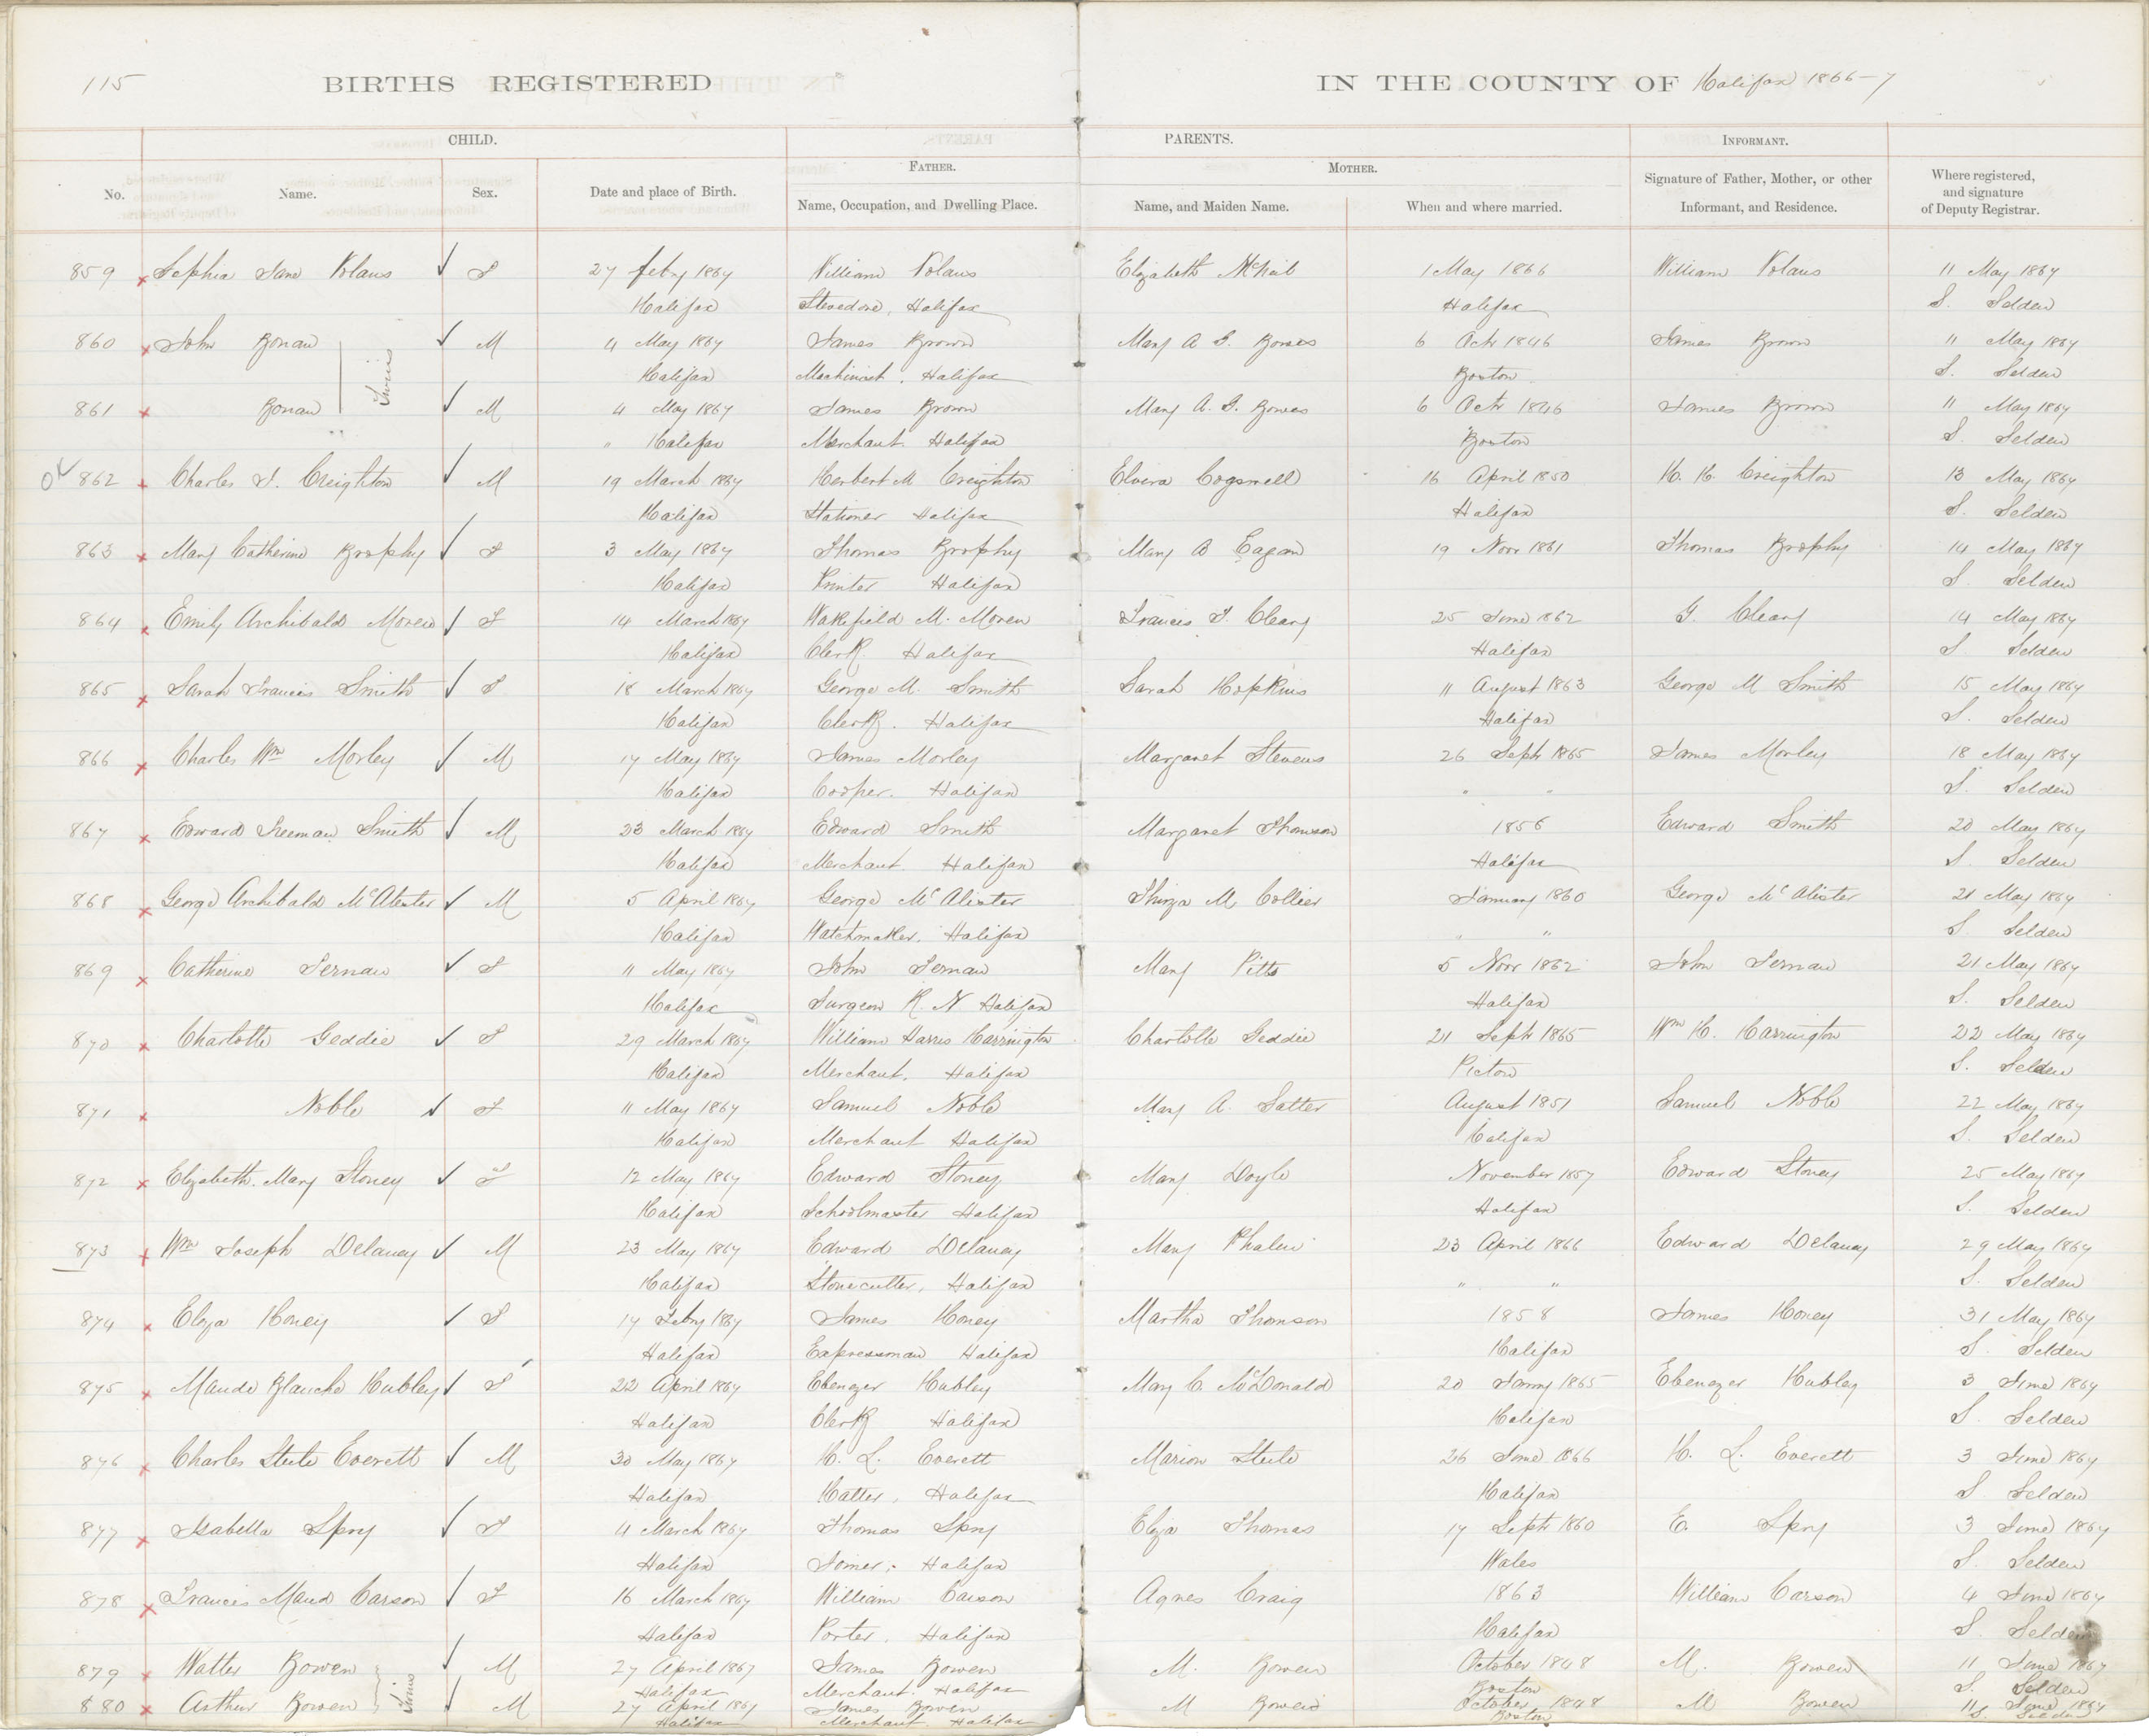 115 BIRTHS REGISTERED IN THE COUNTY OF Halifax 1866-7
CHILD. PARENTS. INFORMANT.
FATHER. MOTHER.
No. Name. Sex. Date and place of Birth. Name, Occupation, and Dwelling Place. Name, and Maiden Name. When and where married. Signature of Father, Mother, or other Informant, and Residence. Where registered, and signature of Deputy Registrar.
859 Sophia Jane Nolans F 27 feby 1867 William Nolans Elizabeth McNeil 1 May 1866 William Nolans 11 May 1867
Halifax Stevedore, Halifax Halifax S. Selden
860 John Bonan M 4 May 1867 James Brown Mary A G. Bowes 6 Octr 1846 James Brown 11 May 1867
Twins
Halifax Machinist, Halifax Boston S. Selden
861 Bonan M 4 May 1867 James Brown Mary A. G. Bowes 6 Octr 1846 James Brown 11 May 1867
" Halifax Merchant. Halifax Boston S. Selden
OK 862 Charles F. Creighton M 19 March 1867 Herbert M Creighton Elvira Cogswell 16 April 1850 H. H. Creighton 13 May 1867
Halifax Stationer Halifax Halifax S. Selden
863 Mary Catherine Brophy F 3 May 1867 Thomas Brophy Mary B Eagan 19 Novr 1861 Thomas Brophy 14 May 1867
Halifax Printer Halifax S. Selden
864 Emily Archibald Moren F 14 March 1867 Wakefield M. Moren Francis F. Cleary 25 June 1862 G. Cleary 14 May 1867
Halifax Clerk Halifax Halifax S. Selden
865 Sarah Francis Smith F 18 March 1867 George M. Smith Sarah Hopkins 11 August 1863 George M Smith 15 May 1867
Halifax Clerk. Halifax Halifax S. Selden
866 Charles Wm Morley M 17 May 1867 James Morley Margaret Stevens 26 Septr 1865 James Morley 18 May 1867
Halifax Cooper. Halifax " " S. Selden
867 Edward Freeman Smith M 23 March 1867 Edward Smith Margaret Thomson 1856 Edward Smith 20 May 1867
Halifax Merchant. Halifax Halifax S. Selden
868 George Archibald McAlister M 5 April 1867 George McAlister Thirza M. Collier January 1860 George McAlister 21 May 1867
Halifax Watchmaker. Halifax " " S. Selden
869 Catherine Fernan F 11 May 1867 John Fernan Mary Pitts 5 Novr 1862 John Fernan 21 May 1867
Halifax Surgeon R. N Halifax Halifax S. Selden
870 Charlotte Geddie F 29 March 1867 William Harris Harrington Charlotte Geddie 21 Septr 1865 Wm H. Harrington 22 May 1867
Halifax Merchant. Halifax Pictou S. Selden
871 Noble F 11 May 1867 Samuel Noble Mary A. Salter August 1851 Samuel Noble 22 May 1867
Halifax Merchant Halifax Halifax S. Selden
872 Elizabeth. Mary Stoney F 12 May 1867 Edward Stoney Mary Doyle November 1857 Edward Stoney 25 May 1867
Halifax Schoolmaster Halifax Halifax S. Selden
873 Wm Joseph Delaney M 23 May 1867 Edward Delaney Mary Phalen 23 April 1866 Edward Delaney 29 May 1867
Halifax Stonecutter, Halifax " " S. Selden
874 Eliza Honey F 17 Feby 1867 James Honey Martha Thomson 1858 James Honey 31 May 1867
Halifax Expressman Halifax Halifax S. Selden
875 Maude Blanche Hubley F 22 April 1867 Ebenezer Hubley Mary C. McDonald 20 Jany 1865 Ebenezer Hubley 3 June 1867
Halifax Clerk Halifax Halifax S. Selden
876 Charles Steele Everett M 30 May 1867 H. L. Everett Marion Steele 26 June 1866 H. L. Everett 3 June 1867
Halifax Hatter, Halifax Halifax S. Selden
877 Isabella Spry F 4 March 1867 Thomas Spry Eliza Thomas 17 Septr 1860 E. Spry 3 June 1867
Halifax Joiner, Halifax Wales S. Selden
878 Francis Maud Carson F 16 March 1867 William Carson Agnes Craig 1863 William Carson 4 June 1867
Halifax Porter, Halifax Halifax S. Selden
879 Walter Bowen M 27 April 1867 James Bowen M. Bowen October 1848 M. Bowen 11 June 1867
Twins
Halifax Merchant. Halifax Boston S. Selden
880 Arthur Bowen M 27 April 1867 James Bowen M Bowen October 1848 M Bowen 11 June 1867
Halifax Merchant Halifax Boston S. Selden